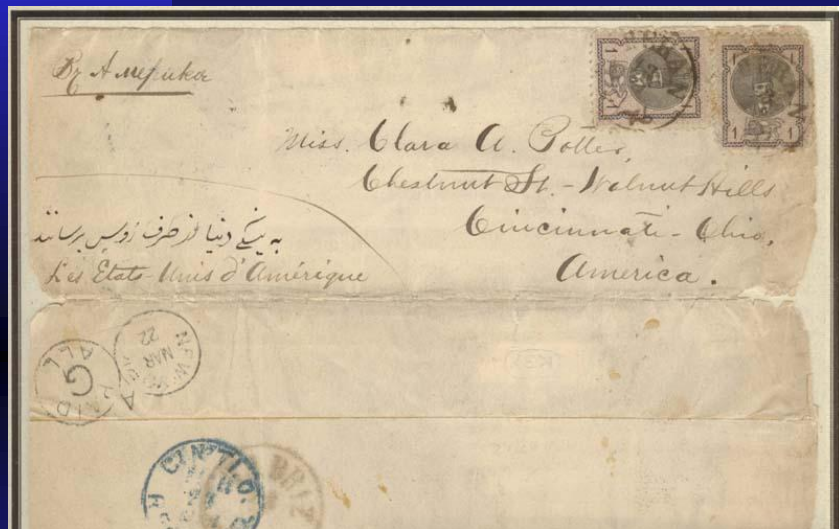 Въ Америка
Miss. Clara A. Potter,
Chestnut St. - Walnut Hills
Cincinnati - Ohio,
America.
به ینگی دنیا از طرف روس برسانند
Les Etats Unis d'Amérique
1 1
1 1
NEW YORK
MAR
22
PAID
G
ALL
CIN'TI. O.